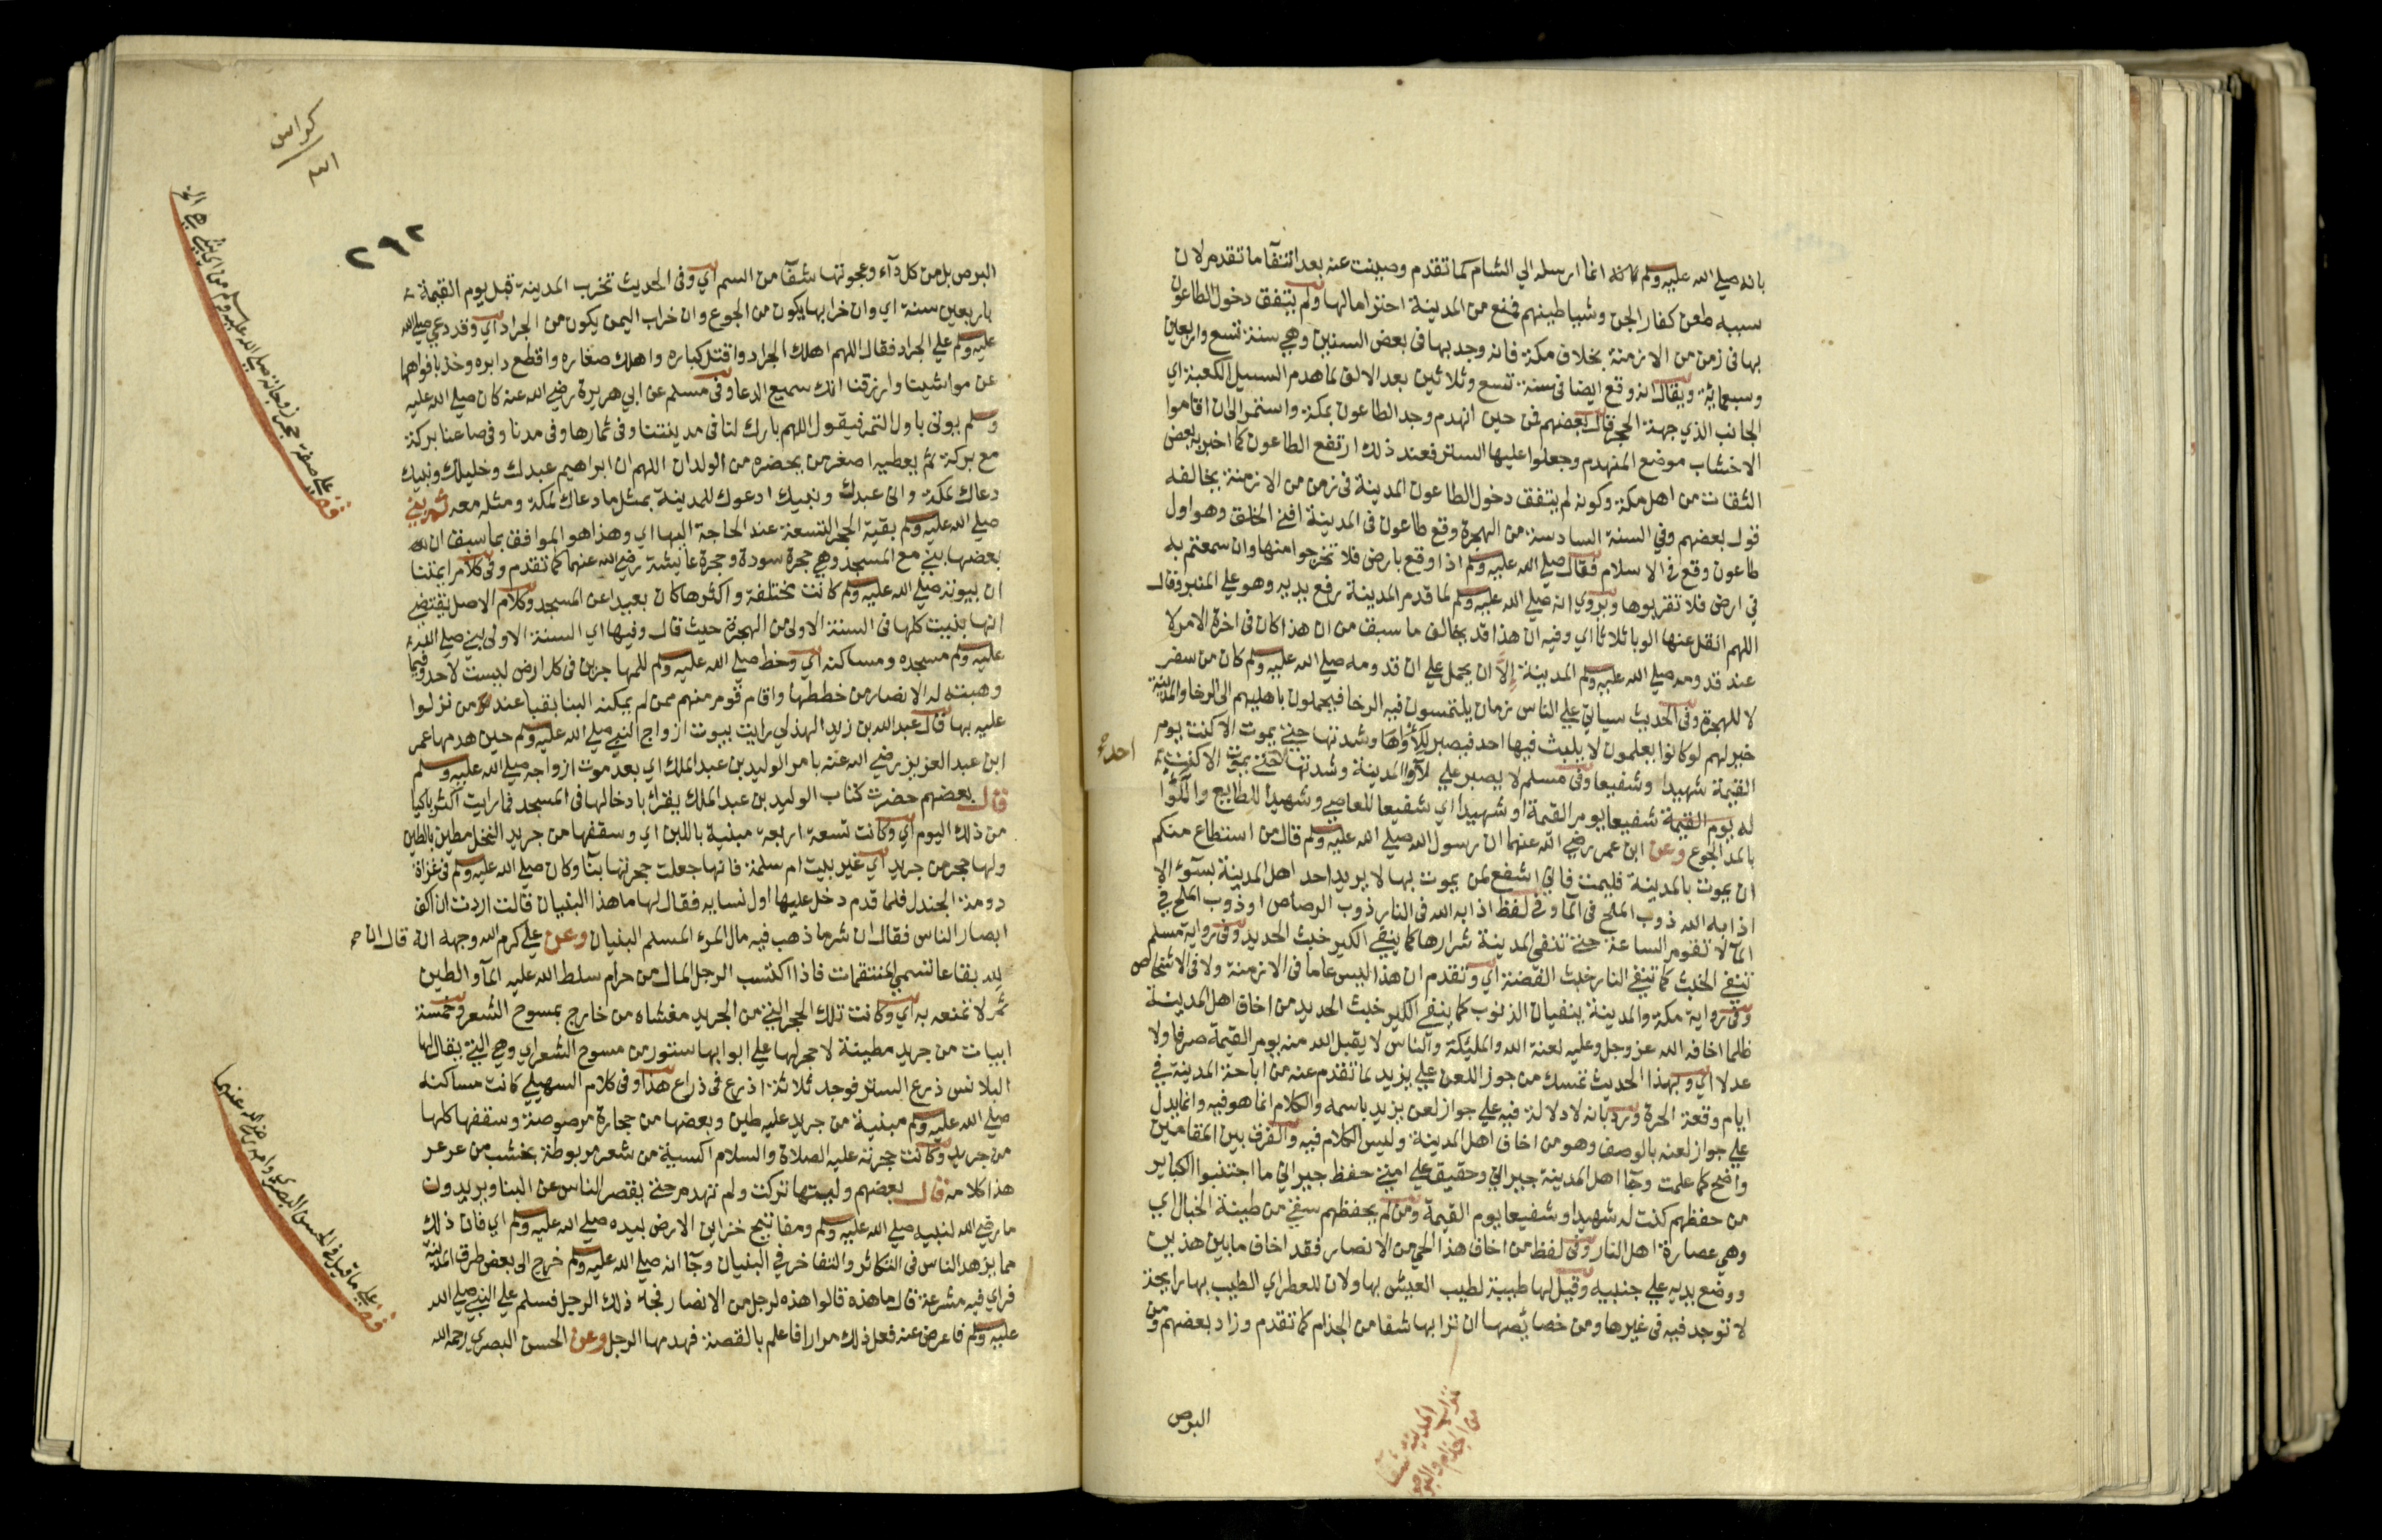 بانه صلي الله عليه وسلم انما ارسله الي الشام كما تقدم وصينت عنه بعد اتفقا ما تقدم لان
سببه طعن كفار الجن وشياطينهم فمنع من المدينة احتراما لها ولم يتفق دخول الطاعون
بها في زمن من الازمنة بخلاف مكة فانه وجد بها في بعض السنين وهي سنة تسع واربعين
وسبعمائة ويقال انه وقع ايضا في سنة تسع وثلاثين بعد الالف لما هدم السيل الكعبة اي
الجانب الذي جهة الحجر قال بعضهم فمن حين انهدم وجد الطاعون بمكة واستمر الي ان اقاموا
الاخشاب موضع المنهدم وجعلوا عليها الستر فعند ذلك ارتفع الطاعون كما اخبر به بعض
الثقات من اهل مكة وكونه لم يتفق دخول الطاعون المدينة في زمن من الازمنة يخالفه
قول بعضهم وفي السنة السادسة من الهجرة وقع طاعون في المدينة افني الخلق وهو اول
طاعون وقع في الاسلام فقال صلي الله عليه وسلم اذا وقع بارض فلا تخرجوا منها وان سمعتم به
في ارض فلا تقربوها ويروي انه صلي الله عليه وسلم لما قدم المدينة رفع يديه وهو علي المنبر وقال
اللهم انقل عنها الوبا ثلاثا اي وفيه ان هذا قد يخالف ما سبق من ان هذا كان في اخرة الامر لا
عند قدومه صلي الله عليه وسلم المدينة إلا ان يحمل علي ان قدومه صلي الله عليه وسلم كان من سفر
لا للهجرة وفي الحديث سياتي علي الناس زمان يلتمسون فيه الرخا فيحملون باهليهم الي الرخا والمدينة
خير لهم لو كانوا يعلمون لا يلبث فيها احد فيصبر لأوائها وشدتها حتي يموت الا كنت يوم
القيمة شهيدا وشفيعا وفي مسلم لا يصبر علي لأوا المدينة وشدتها حتي يموت الا كنت
احد
له يوم القيمة شفيعا يوم القيمة او شهيدا اي شفيعا للعاصي وشهيدا للطايع والأوا
بالمد الجوع وعن ابن عمر رضي الله عنهما ان رسول الله صلي الله عليه وسلم قال من استطاع منكم
ان يموت بالمدينة فليمت فاني اشفع لمن يموت بها لا يريد احد اهل المدينة بسوء الا
اذابه الله ذوب الملح في المآ وفي لفظ اذابه الله في النار ذوب الرصاص او ذوب الملح في
المآ لا تقوم الساعة حتي تنفي المدينة شرارها كما ينفي الكير خبث الحديد وفي رواية مسلم
تنفي الخبث كما تنفي النار خبث الفضة اي وتقدم ان هذا ليس عاما في الازمنة ولا في الاشخاص
وفي رواية مكة والمدينة ينفيان الذنوب كما ينفي الكير خبث الحديد من اخاف اهل المدينة
ظلما اخافه الله عز وجل وعليه لعنة الله والمليكة والناس لا يقبل الله منه يوم القيمة صرفا ولا
عدلا اي وبهذا الحديث تمسك من جوز اللعن علي يزيد لما تقدم عنه من اباحة المدينة في
ايام وقعة الحرة ورد بانه لا دلالة فيه علي جواز لعن يزيد باسمه والكلام انما هو فيه وانما يدل
علي جواز لعنه بالوصف وهو من اخاف اهل المدينة وليس الكلام فيه والفرق بين المقامين
واضح كما علمت وجآ اهل المدينة جيراني وحقيق علي امتي حفظ جيراني ما اجتنبوا الكباير
من حفظهم كنت له شهيدا وشفيعا يوم القيمة ومن لم يحفظهم سقي من طينة الخبال اي
وهي عصارة اهل النار وفي لفظ من اخاف هذا الحي من الانصار فقد اخاف ما بين هذين
ووضع يديه علي جنبيه وقيل لها طيبة لطيب العيش بها ولان للعطر اي الطيب بها رايحة
لا توجد فيه في غيرها ومن خصائصها ان ترابها شفا من الجذام كما تقدم وزاد بعضهم ومن
البرص
تراب المدينة شفآ
من الجذام والبرص
كراس
٢٩٢
البرص بل من كل دآء وعجوتها شفآ من السم اي وفي الحديث تخرب المدينة قبل يوم القيمة
باربعين سنة اي وان خرابها يكون من الجوع وان خراب اليمن يكون من الجراد اي وقد دعي صلي الله
عليه وسلم علي الجراد فقال اللهم اهلك الجراد واقتل كباره واهلك صغاره واقطع دابره وخذ بافواهها
عن مواشينا وارزقنا انك سميع الدعا وفي مسلم عن ابي هريرة رضي الله عنه كان صلي الله عليه
وسلم يوتي باول التمر فيقول اللهم بارك لنا في مدينتنا وفي ثمارها وفي مدنا وفي صاعنا بركة
مع بركة ثم يعطيه اصغر من يحضره من الولدان اللهم ان ابراهيم عبدك وخليلك ونبيك
دعاك لمكة واني عبدك ونبيك ادعوك للمدينة بمثل ما دعاك لمكة ومثله معه ثم بني
صلي الله عليه وسلم بقية الحجر التسعة عند الحاجة اليها اي وهذا هو الموافق بما سبق ان
بعضها بني مع المسجد وهي حجرة سودة وحجرة عايشة رضي الله عنهما كما تقدم وفي كلام ايمتنا
ان بيوته صلي الله عليه وسلم كانت مختلفة واكثرها كان بعيدا عن المسجد وكلام الاصل يقتضي
انها بنيت كلها في السنة الاولي من الهجرة حيث قال وفيها اي السنة الاولي بني صلي الله
عليه وسلم مسجده ومساكنه اي وخط صلي الله عليه وسلم للمهاجرين في كل ارض ليست لاحد وفيما
وهبته له الانصار من خططها واقام قوم منهم ممن لم يمكنه البنا بقبا عند من نزلوا
عليه بها قال عبد الله بن زيد الهذلي رايت بيوت ازواج النبي صلي الله عليه وسلم حين هدمها عمر
ابن عبد العزيز رضي الله عنه بامر الوليد بن عبد الملك اي بعد موت ازواجه صلي الله عليه وسلم
قال بعضهم حضرت كتاب الوليد بن عبد الملك يقرأ بادخالها في المسجد فما رايت اكثر باكيا
من ذلك اليوم اي وكانت تسعة اربعة مبنية باللبن اي وسقفها من جريد النخل مطين بالطين
ولها حجر من جريد اي غير بيت ام سلمة فانها جعلت حجرتها بنآ وكان صلي الله عليه وسلم في غزاة
دومة الجندل فلما قدم دخل عليها اول نسايه فقال لها ما هذا البنيان قالت اردت ان اكف
ابصار الناس فقال ان شر ما ذهب فيه مال المرء المسلم البنيان وعن علي كرم الله وجهه انه قال ان
لله بقاعا تسمي المنتقمات فاذا اكتسب الرجل المال من حرام سلط الله عليه المآ والطين
ثم لا تمنعه به اي وكانت تلك الحجر التي من الجريد مغشاه من خارج بمسوح الشعر وخمسة
ابيات من جريد مطينة لا حجر لها علي ابوابها ستور من مسوح الشعر اي وهي التي يقال لها
البلانس ذرع الستر فوجد ثلاثة اذرع في ذراع هذا وفي كلام السهيلي كانت مساكنه
صلي الله عليه وسلم مبنية من جريد عليه طين وبعضها من حجارة مرصوصة وسقفها كلها
من جريد وكانت حجرته عليه الصلاة والسلام اكسية من شعر مربوطة بخشب من عرعر
هذا كلامه قال بعضهم وليتها تركت ولم تهدم حتي يقصر الناس عن البنا ويريدون
ما رضي الله لنبيه صلي الله عليه وسلم ومفاتيح خزاين الارض بيده صلي الله عليه وسلم اي فان ذلك
مما يزهد الناس في التكاثر والتفاخر في البنيان وجآ انه صلي الله عليه وسلم خرج الي بعض طرق المدينة
فراي فيه مشرعة قال ما هذه قالوا هذه لرجل من الانصار فجاء ذلك الرجل فسلم علي النبي صلي الله
عليه وسلم فاعرض عنه فعل ذلك مرارا فاعلم بالقصة فهدمها الرجل وعن الحسن البصري رحمه الله
قف علي صفة حجر ازواجه صلي الله عليه وسلم
قف علي ما قيل في الحسن البصري وامه رضي الله عنهما